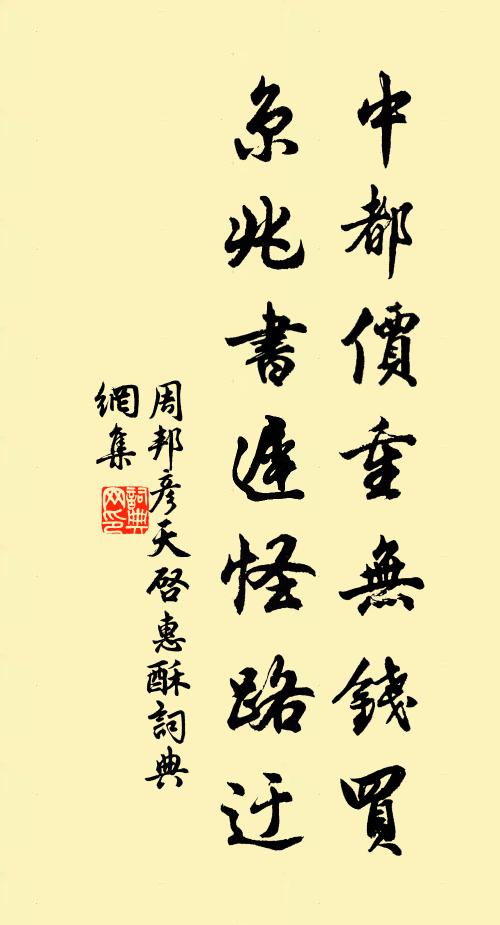 中都價重無錢買
京兆書遲怪路迂
周邦彥天啓惠酥詞典
網集
詞典
网印